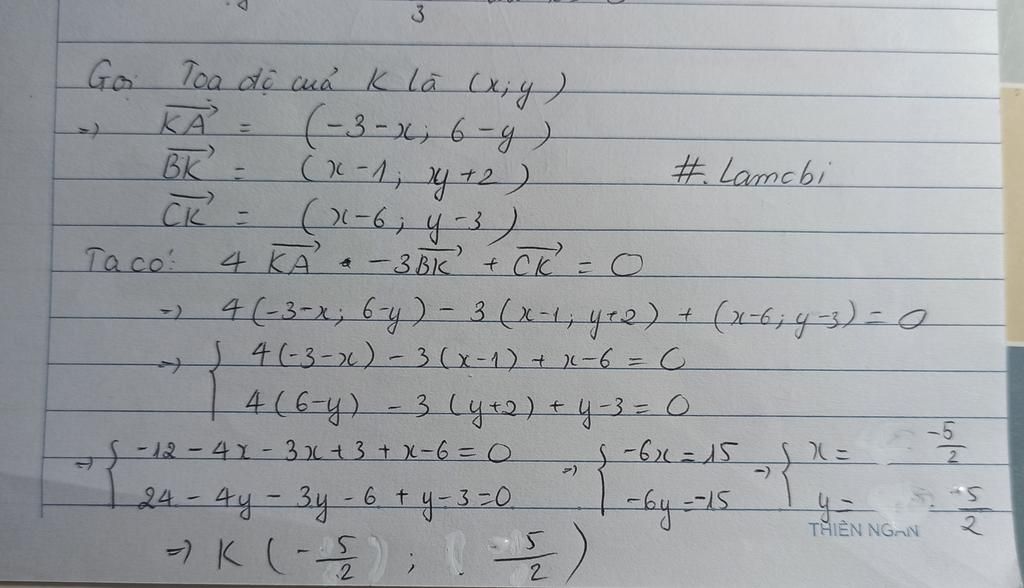 3
Gọi Toạ độ của K là (x; y)
=> KA = (-3-x; 6-y)
BK = (x-1; y+2)
#.Lamcbi
CK = (x-6; y-3)
Ta có: 4 KA - 3BK + CK = 0
=> 4(-3-x; 6-y) - 3(x-1; y+2) + (x-6; y-3) = 0
=> { 4(-3-x) - 3(x-1) + x-6 = 0
4(6-y) - 3(y+2) + y-3 = 0
=> { -12 - 4x - 3x + 3 + x - 6 = 0 => { -6x = 15 => { x = -5/2
24 - 4y - 3y - 6 + y - 3 = 0 -6y = -15 y = -5/2
THIÊN NGAN
=> K (-5/2 ; 5/2)